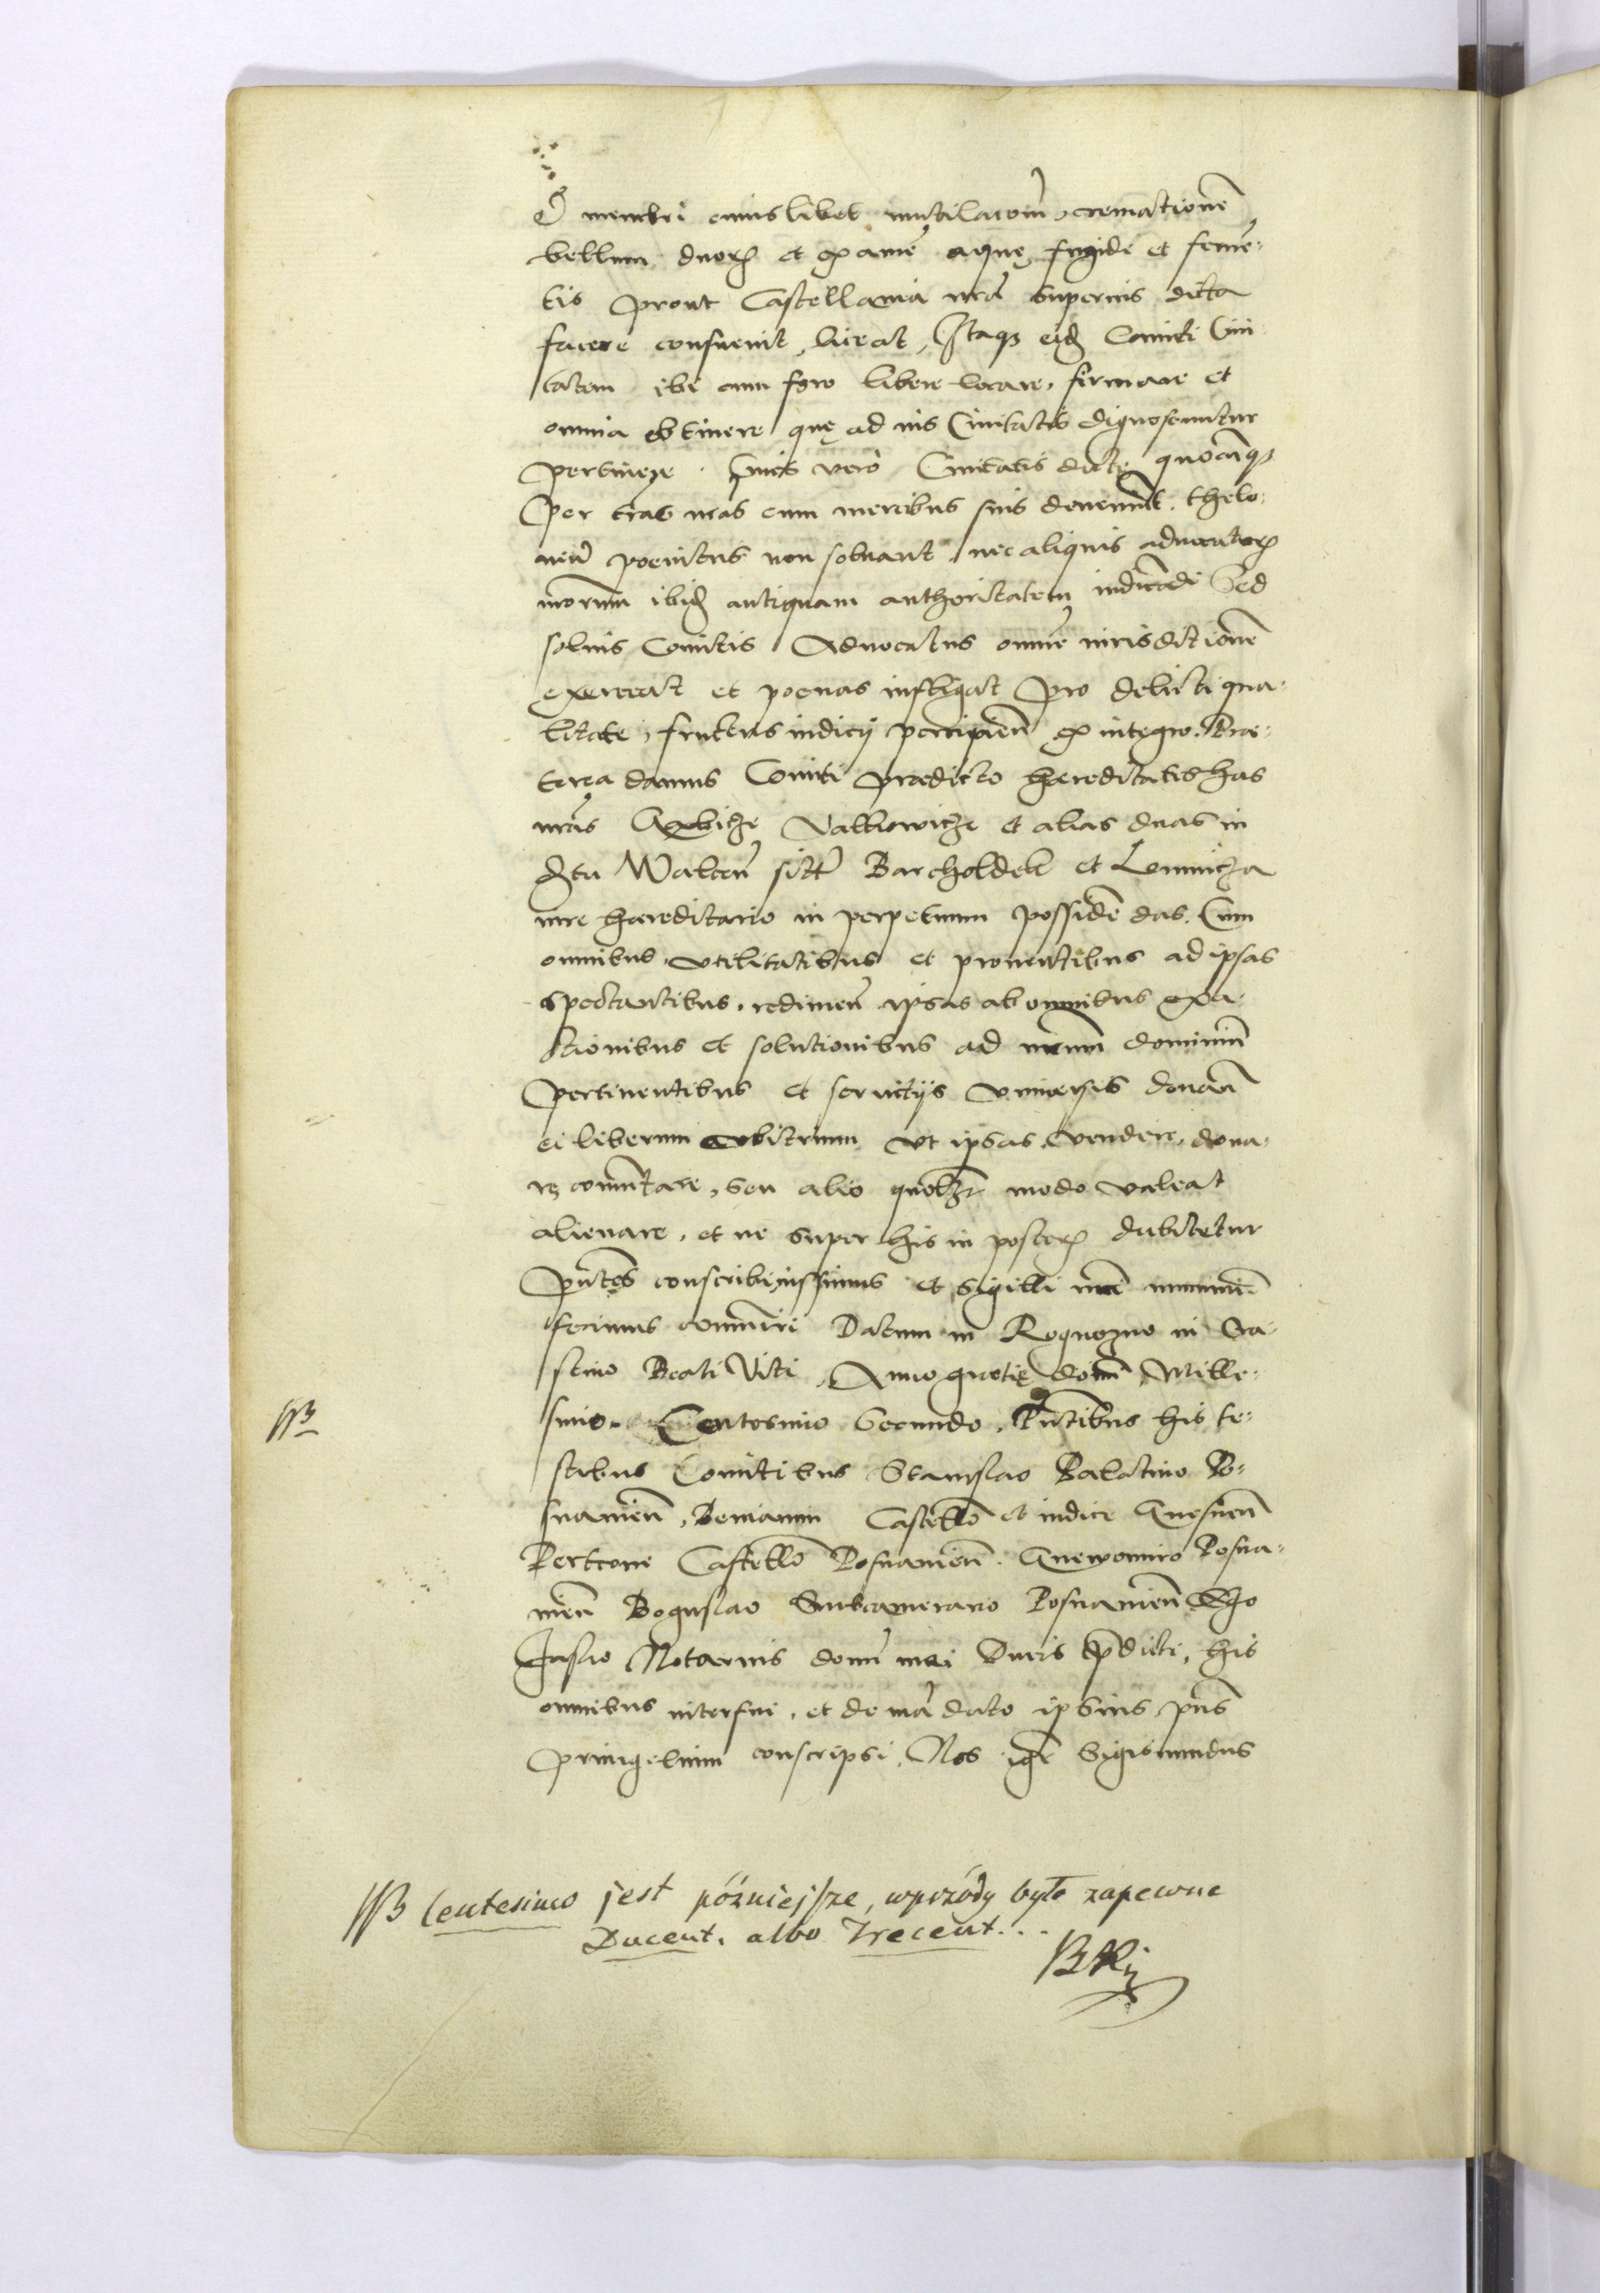 membri cuiuslibet mutilacoem, cremationē
bellum duorꝝ et examē aquę frigide et feruē-
tis prout Castellania nr̄a superius dicta
facere consueuit, liceat, Itaqꝫ eid̄ Comiti Ciui
tatem ibi cum foro libere locare, firmare et
omnia obtinere quę ad ius Ciuitatis dignoscuntur
pertinere. Ciues vero Ciuitatis dictę quocūqꝫ
Per tr̄as nr̄as cum mercibus suis deuenerint. thelo-
neū poenitus non soluant nec aliquis aduocatorꝝ
nr̄orum ibid̄ antiquam authoritatem iudicādi Sed
solius Comitis Aduocatus omnē iurisditionē
exerceat et poenas infligat pro delicti qua-
litate, fructus iudicij percipieñ ex integro. Prae-
terea damus Comiti praedicto haereditates has
nr̄as et alias duas in
Walceñ sitt Barcholdell et Lommicza
iure haereditario in perpetuum possidēdas. Cum
omnibus vtilitatibus et prouentibus ad ipsas
spectantibus, redimeñ ipsas ab omnibus exa-
ctionibus et solutionibus ad nr̄um dominiū
pertinentibus et seruitijs vniuersis donañ
ei liberum arbitrium vt ipsas vendere, dona-
re, comūtare, seu alio quolibꝫ modo valeat
alienare, et ne super his in posterꝝ dubitetur
pn̄tes conscribi iussimus et sigilli nr̄i munimiē
fecimus cōmuniri Datum in Rogozno in Cra-
stino Beati Viti, Anno gratię domī Mille-
simo Centesimo Secundo, Pn̄tibus his te-
stibus Comitibus Stanislao Palatino Po-
snanieñ, Beniamin Castellō et iudice Gnesneñ
Pertcone Castellō Posnanieñ. Gnewomiro Posna-
nieñ Boguslao Subcamerario Posnanieñ Ego
Jasco Notarius domī mei Ducis pdicti, his
omnibus interfui, et de mādato ipsius pn̄s
priuigelium conscripsi. Nos igr̄ Sigismundus
NB
NB Centesimo jest późniejsze, wprzódy było zapewne
Ducent. albo Trecent...